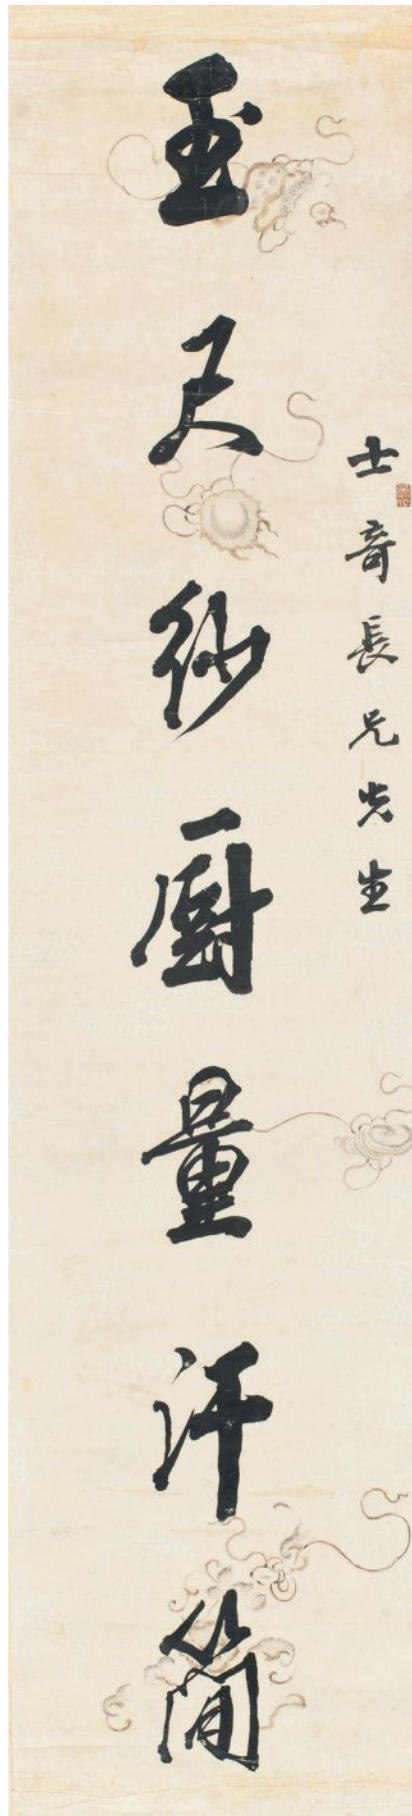 士奇長兄先生
玉尺紗厨量汗簡